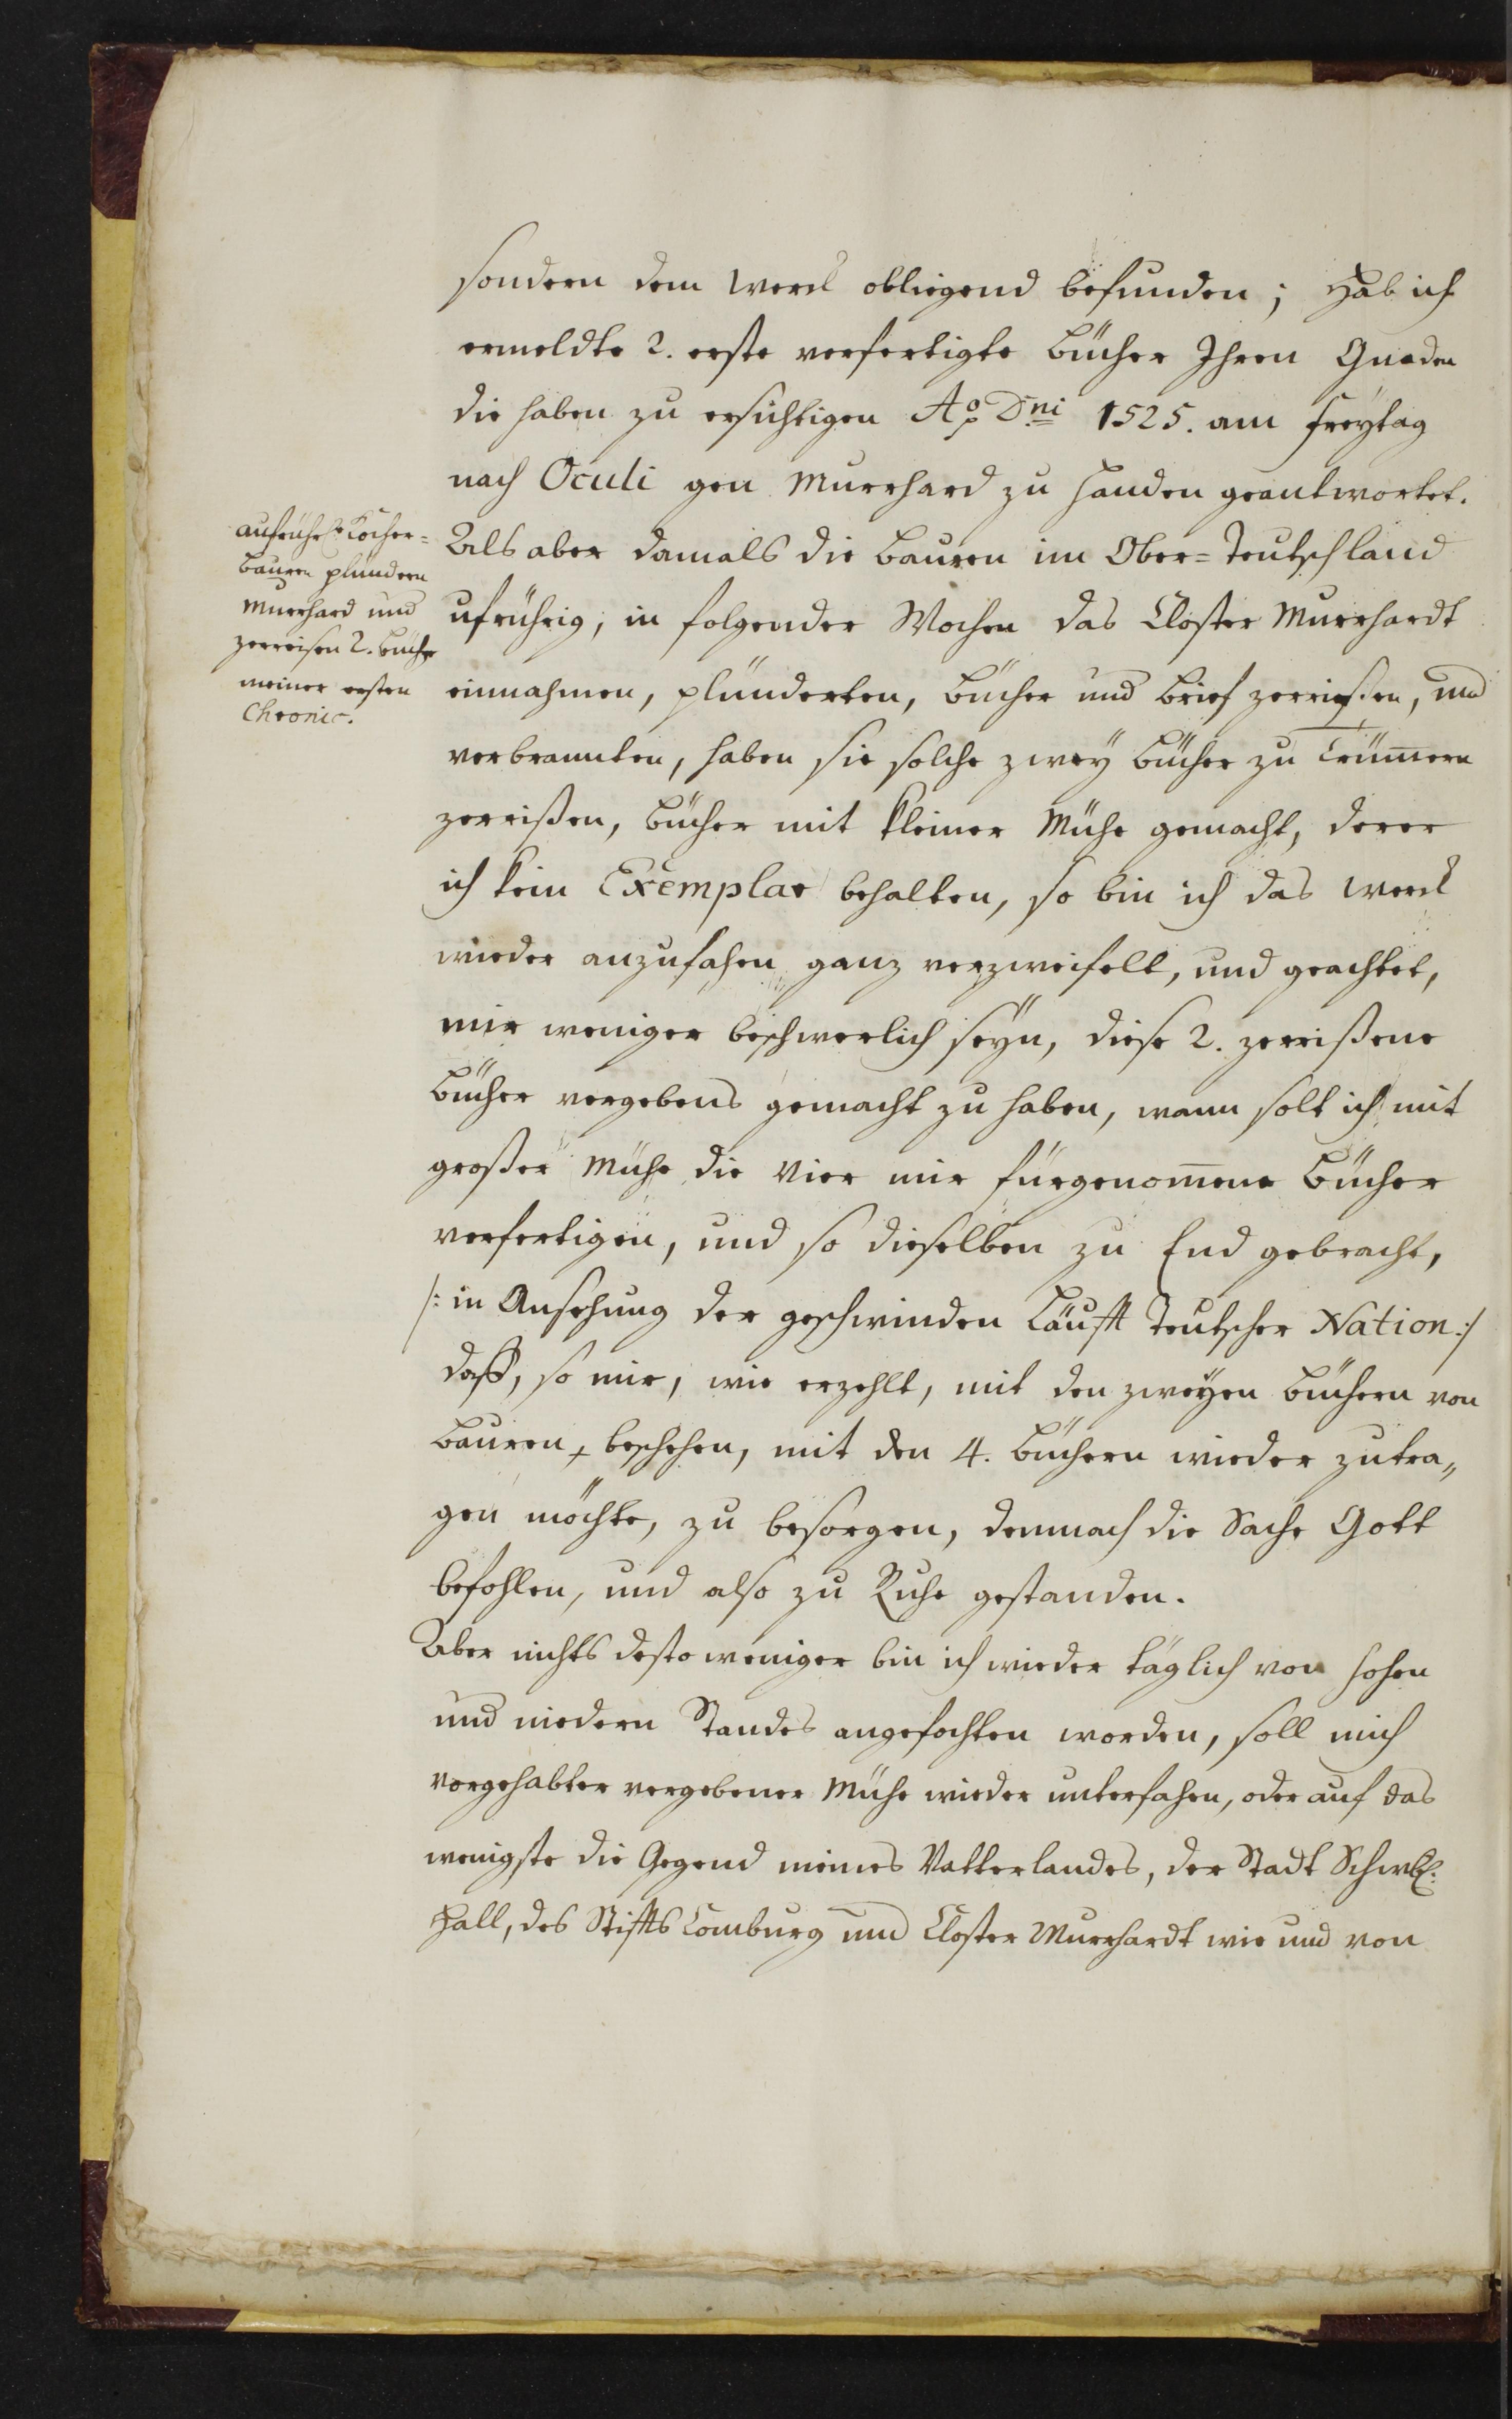 sondern dem Werck obliegend befunden; Hab ich
ermeldte 2. erste verfertigte Bücher Ihren Gnaden
die haben zu ersichtigen Ao Dni 1525. am Freytag
nach Oculi gen Murrhard zu Handen geantwortet.
Als aber damals die Bauren im Ober=Teutschland
ufrührig, in folgender Wochen das Closter Murrhardt
einnahmen, plünderten, Bücher und Brief zerrißen, und
verbrannten, haben sie solche zwey Bücher zu Trüm̄ern
zerrißen, Bücher mit kleiner Mühe gemacht, derer
ich kein Exemplar behalten, so bin ich das Werck
wieder anzufahen ganz verzweifelt, und geachtet,
mir weniger beschwerlich seyn, diese 2. zerrißene
Bücher vergebens gemacht zu haben, wann solt ich mit
großer Mühe die vier mir fürgenom̄ene Bücher
verfertigen, und so dieselben zu End gebracht,
/: in Ansehung der geschwinden Läufft Teutscher Nation :/
daß, so mir, wie erzehlt, mit den zweyen Büchern von
Bauren, beschehen, mit den 4. Büchern wieder zutra„
gen möchte, zu besorgen, demnach die Sache Gott
befohlen, und also zu Ruhe gestanden.
Aber nichts desto weniger bin ich wieder täglich von hohen
und niedern Standes angefochten worden, soll mich
vorgehabter vergebener Mühe wieder unterfahen, oder auf das
wenigste die Gegend meines Vatterlandes, der Stadt Schwb:
Hall, des Stiffts Comburg und Closter Murrhardt wie und von
aufrühr: Kocher=
Bauren plündern
Murrhard und
zerreisen 2. Bücher
meiner ersten
Chronic.